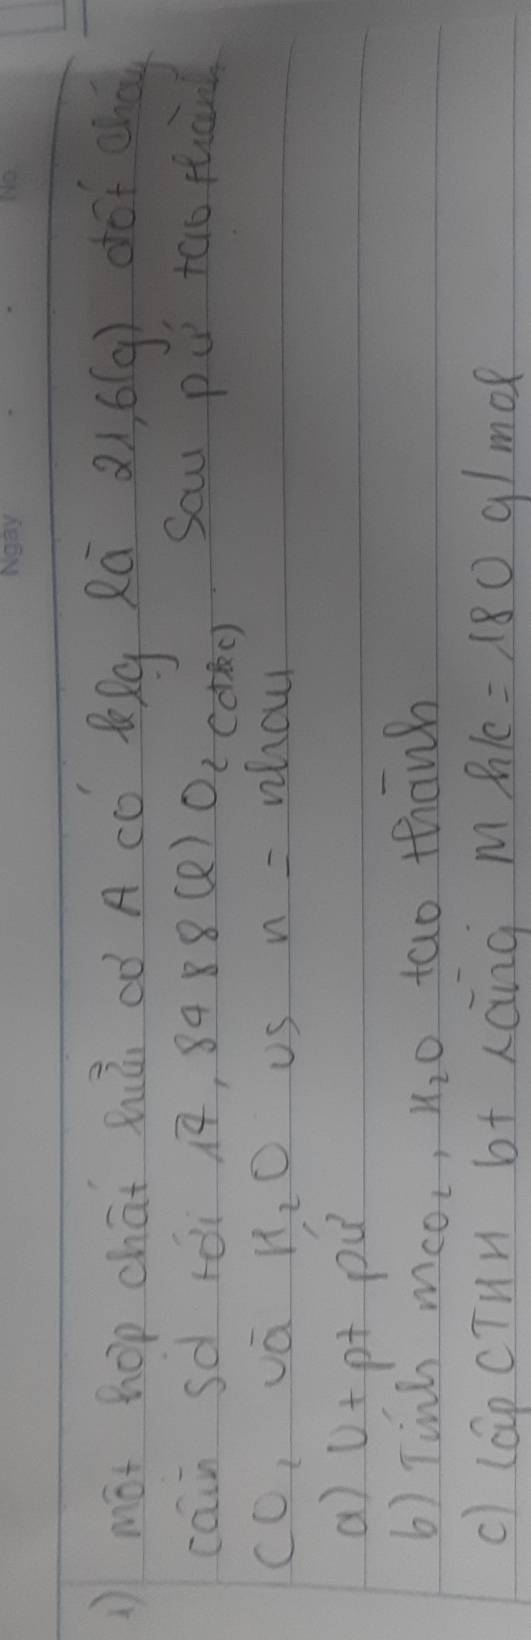 No.
Ngày
1) một hợp chất hữu cơ A có klg là 21,6(g) đốt cháy
cần sd tới 17,8488(l) O₂ (đkc). Sau pứ tạo thành
CO₂ và H₂O vs n = nhau
a) Vt pt pứ
b) Tính mCO₂, H₂O tạo thành
c) lập CTHH bt rằng M h/c = 180 g/mol